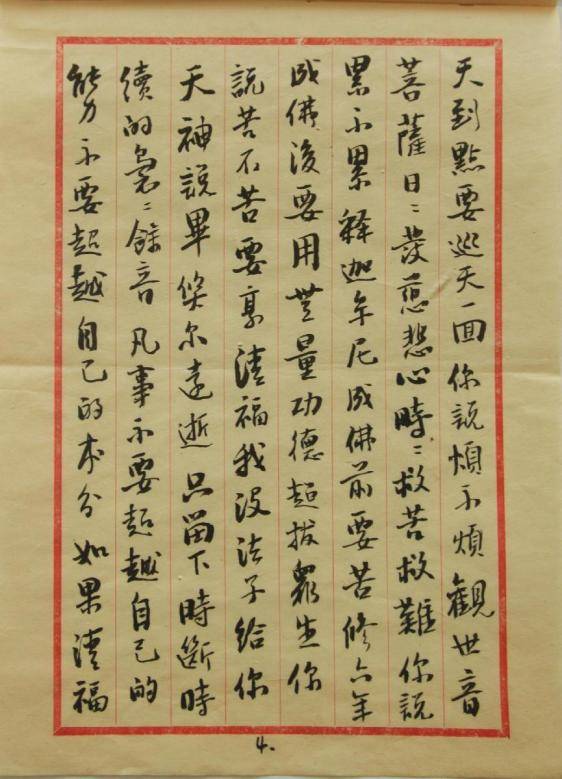 天到點要巡天一回你說煩不煩觀世音
菩薩日〻發慈悲心時〻救苦救難你說
累不累释迦牟尼成佛前要苦修六年
成佛後要用無量功德超拔眾生你
說苦不苦要享清福我没法子給你
天神說畢倏尔遠逝只留下時斷時
續的裊〻餘音凡事不要超越自己的
能力不要超越自己的本分如果清福
4.